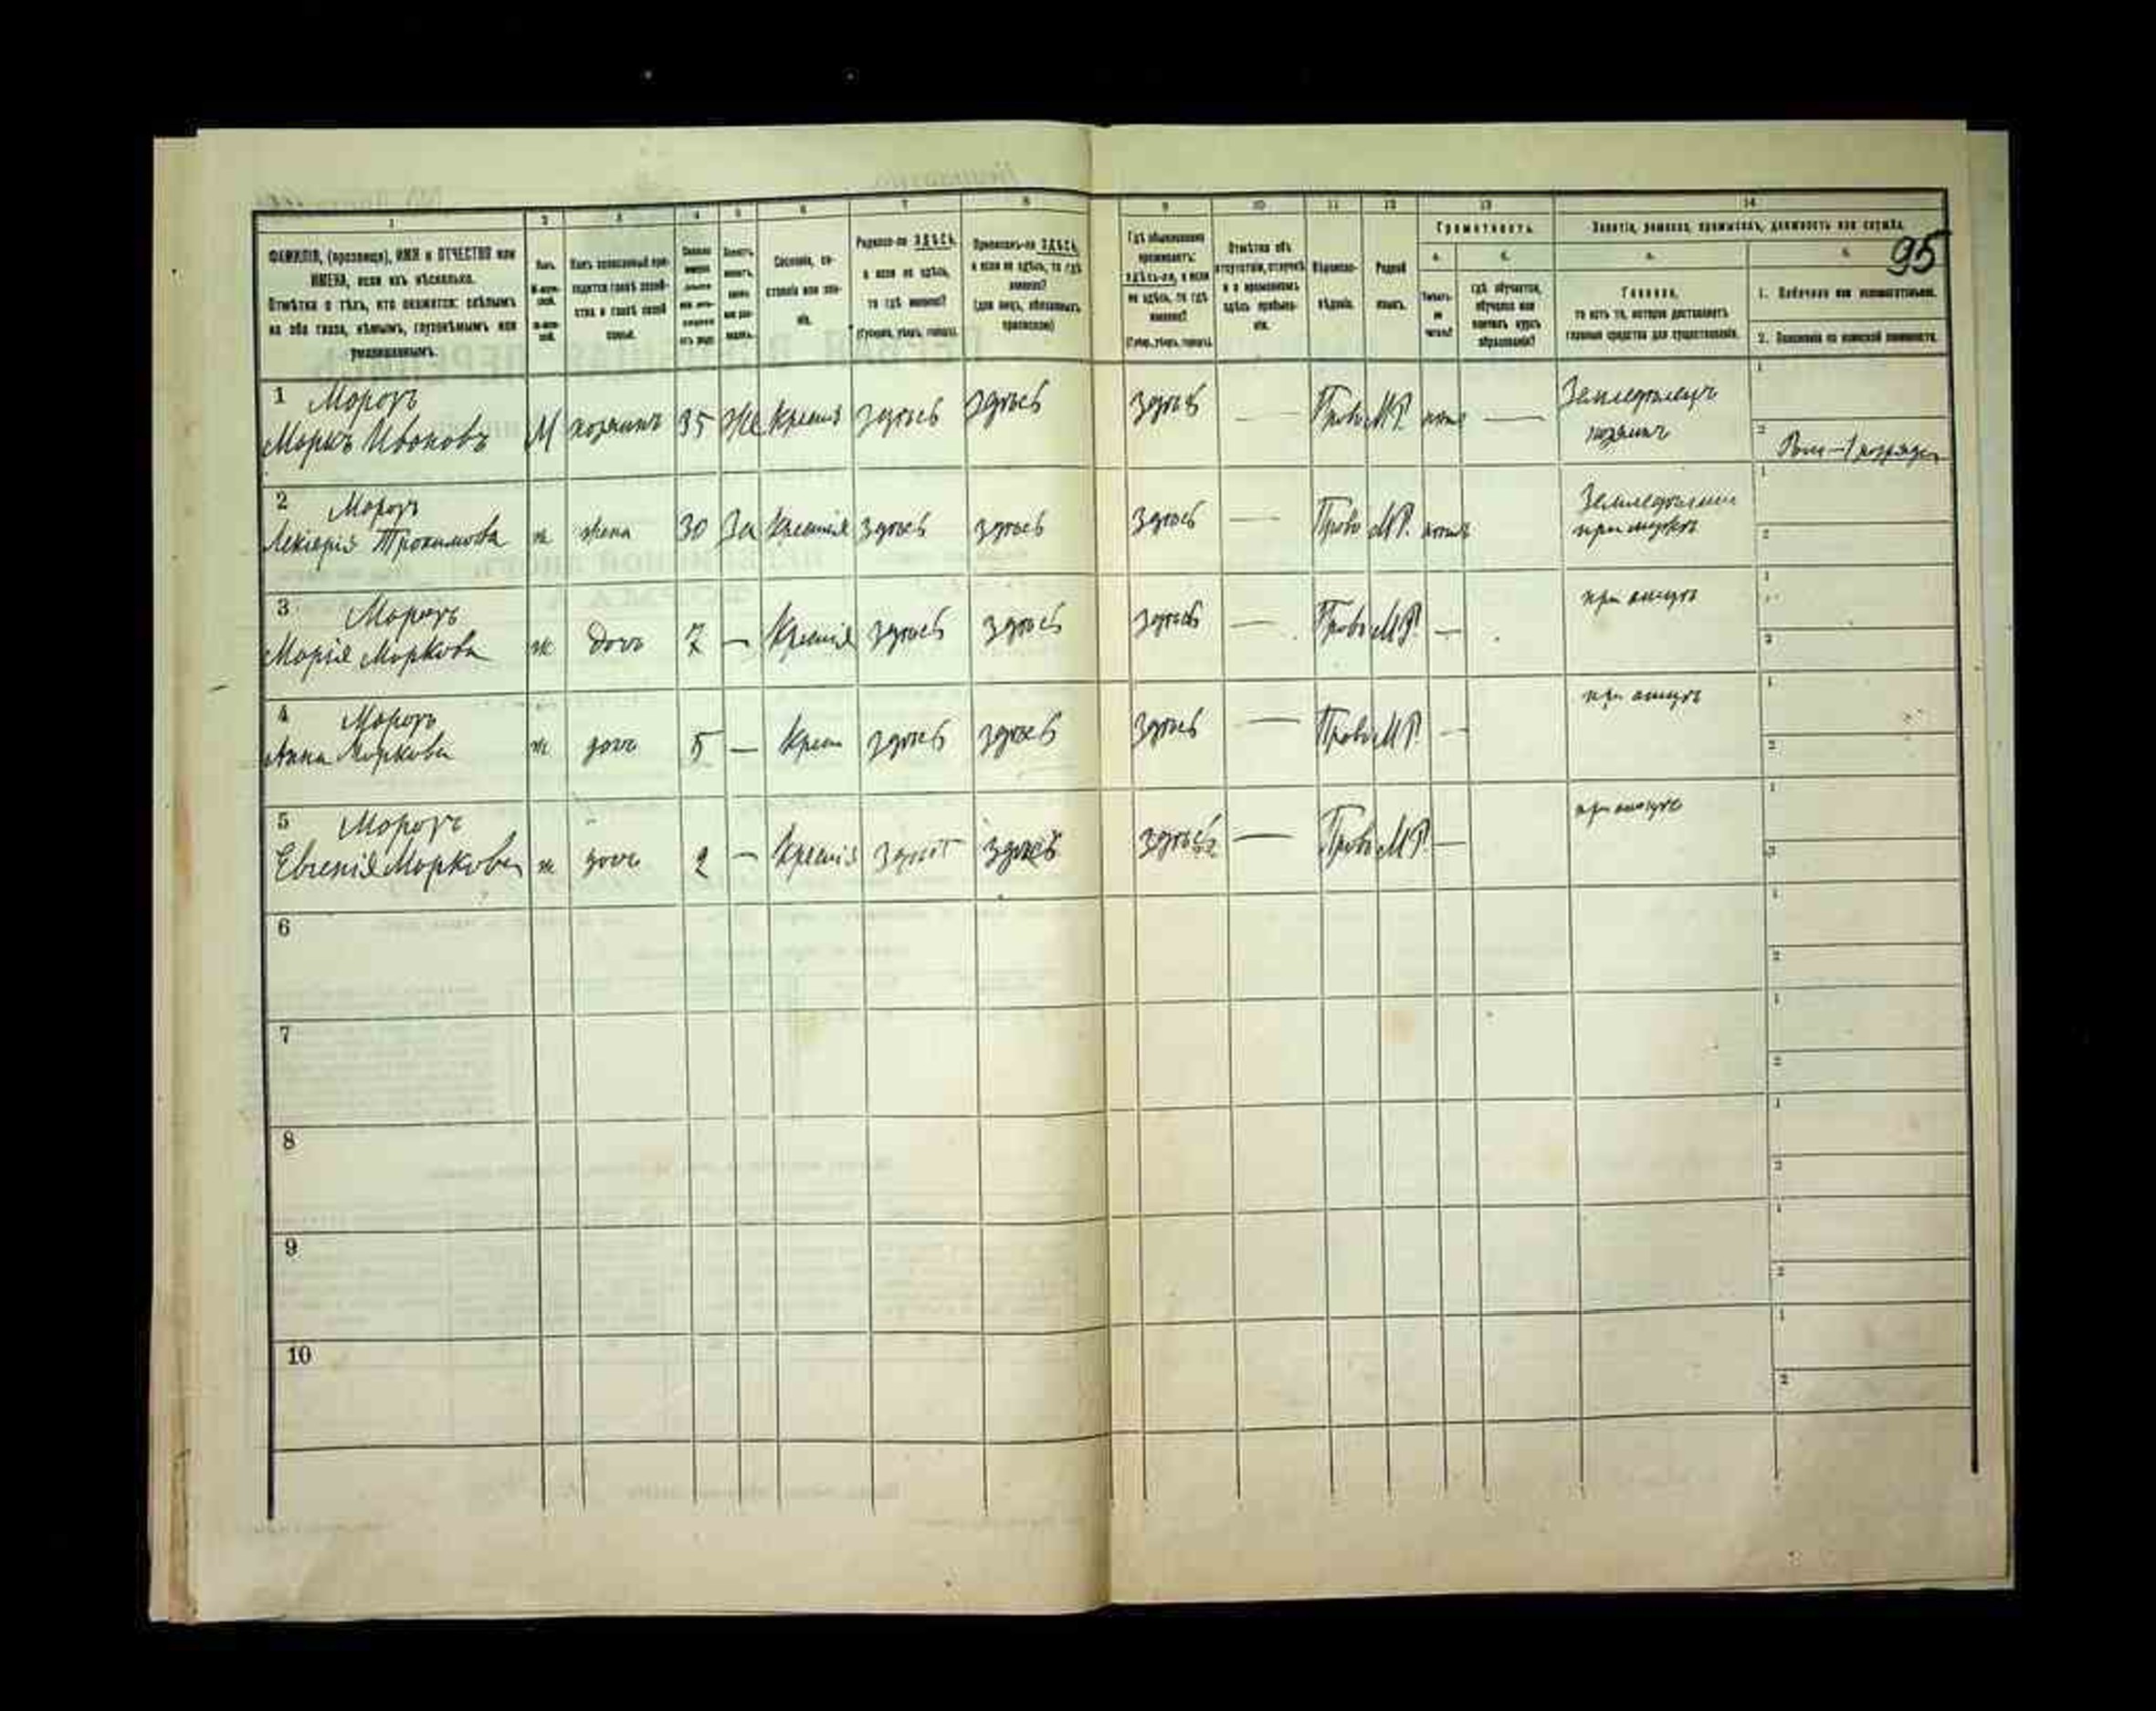 1 2 3 4 5 6 7 8 9 10 11 12 13 14
ФАМИЛІЯ, (прозвище), ИМЯ и ОТЧЕСТВО или
ИМЕНА, если ихъ нѣсколько.
Отмѣтка о тѣхъ, кто окажется: слѣпымъ
на оба глаза, нѣмымъ, глухонѣмымъ или
умалишеннымъ.
Полъ.
Какъ записанный при-
ходится главѣ хозяй-
ства и главѣ своей
семьи.
Сословіе, со-
стояніе или зва-
ніе.
Родился-ли ЗДѢСЬ,
а если не здѣсь,
то гдѣ именно?
(Губернія, уѣздъ, городъ).
Приписанъ-ли ЗДѢСЬ,
а если не здѣсь, то гдѣ
именно?
(для лицъ, обязанныхъ
припискою)
Гдѣ обыкновенно
проживаетъ:
здѣсь-ли, а если
не здѣсь, то гдѣ
именно?
(Губер., уѣздъ, городъ).
Отмѣтка объ
отсутствіи, отлучкѣ
и о временномъ
здѣсь пребыва-
ніи.
Вѣроиспо-
вѣданіе.
Родной
языкъ.
Грамотность.
а. б.
Умѣетъ-
ли
читать?
гдѣ обучается,
обучался или
кончилъ курсъ
образованія?
Занятіе, ремесло, промыселъ, должность или служба.
а. б.
95
Главное,
то есть то, которое доставляетъ
главныя средства для существованія.
1. Побочное или вспомогательное.
2. Положеніе по воинской повинности.
1 Морозъ
Маркъ Ивановъ М хозяинъ 35 Же здѣсь здѣсь здѣсь — Право М.Р. —
Земледѣлецъ
хозяинъ
1
2
2 Морозъ
Трохимова ж жена 30 За здѣсь здѣсь здѣсь — Право М.Р.
при мужѣ
1
2
3 Морозъ
Марія Маркова ж дочь 7 — здѣсь здѣсь здѣсь — Право М.Р. —
при отцѣ
1
2
4 Морозъ
Анна Маркова ж дочь 5 — Крест здѣсь здѣсь здѣсь — Право М.Р. —
при отцѣ
1
2
5 Морозъ
Евгенія Маркова ж дочь 2 — здѣсь здѣсь здѣсь — Право М.Р. —
при отцѣ
1
2
6
1
2
7
1
2
8
1
2
9
1
2
10
1
2